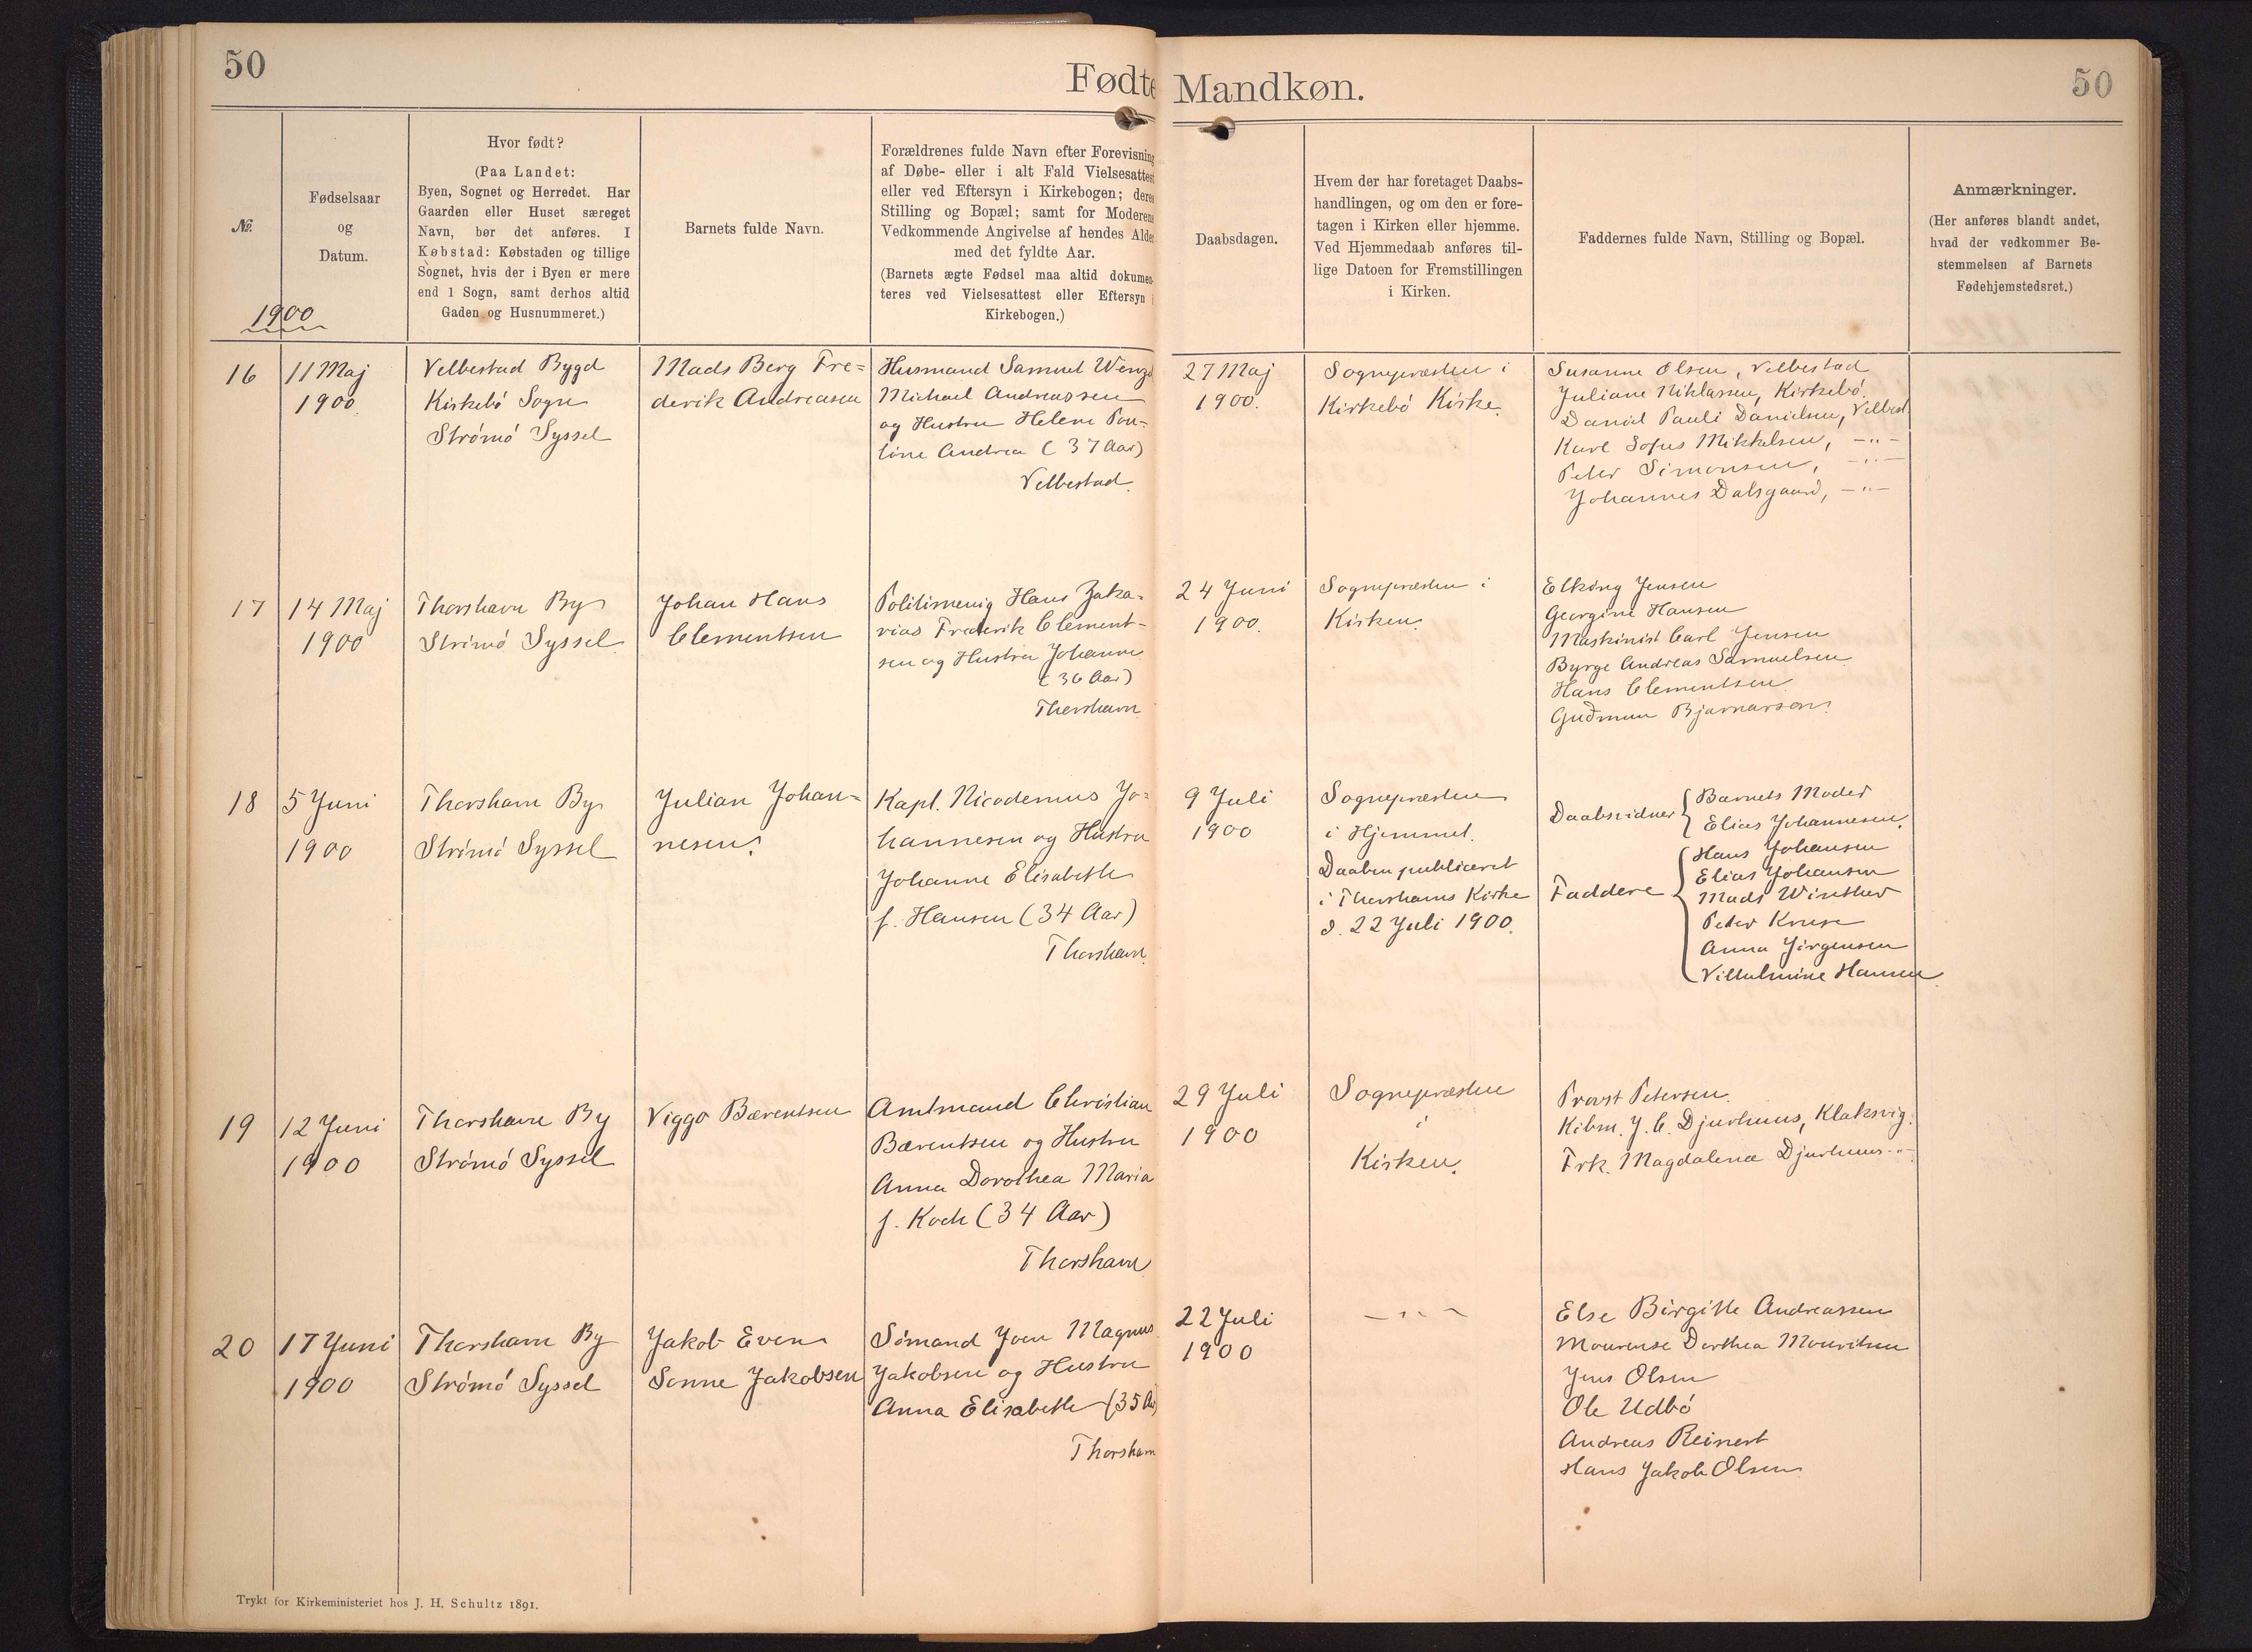 50
Fødte
Mandkøn.
50
№
Fødselsaar
og
Datum.
Hvor født?
(Paa Landet:
Byen, Sognet og Herredet. Har
Gaarden eller Huset særeget
Navn, bør det anføres. I
Købstad: Købstaden og tillige
Sognet, hvis der i Byen er mere
end 1 Sogn, samt derhos altid
Gaden og Husnummeret.)
Barnets fulde Navn.
Forældrenes fulde Navn efter Forevisning
af Døbe- eller i alt Fald Vielsesattest
eller ved Eftersyn i Kirkebogen; deres
Stilling og Bopæl; samt for Moderens
Vedkommende Angivelse af hendes Alder
med det fyldte Aar.
(Barnets ægte Fødsel maa altid dokumen-
teres ved Vielsesattest eller Eftersyn i
Kirkebogen.)
Daabsdagen.
Hvem der har foretaget Daabs-
handlingen, og om den er fore-
tagen i Kirken eller hjemme.
Ved Hjemmedaab anføres til-
lige Datoen for Fremstillingen
i Kirken.
Faddernes fulde Navn, Stilling og Bopæl.
Anmærkninger.
(Her anføres blandt andet,
hvad der vedkommer Be-
stemmelsen af Barnets
Fødehjemstedsret.)
1900
16
11 Maj
1900
Velbestad Bygd
Kirkebö Sogn
Strömö Syssel
Mads Berg Fre=
derik Andreasen
Husmand Samuel
Michael Andreassen
og Hustru Helene Pau-
line Andrea (37 Aar)
Velbestad.
27 Maj
1900.
Sognepræsten i
Kirkebö Kirke.
Susanne Olsen, Velbestad
Juliane Niklassen, Kirkebö.
Daniel Pauli Danielsen, Velbest.
Karl Sofus Mikkelsen, -"-
Peter Simonsen, -"-
Johannes Dalsgaard, -"-
17
14 Maj
1900
Thorshavn By
Strömö Syssel.
Johan Hans
Clementsen
Politimenig Hans Zaka-
rias Frederik Clement-
sen og Hustru Johanne
(36 Aar)
Thorshavn
24 Juni
1900.
Sognepræsten i
Kirken.
Elköng Jensen
Georgine Hansen
Maskinist Carl Jensen
Byrge Andreas Samuelsen
Hans Clementsen
Guðmun Bjarnarson.
18
5 Juni
1900
Thorshavn By
Strömö Syssel
Julian Johan-
nesen.
Kapt. Nicodemus Jo-
hannesen og Hustru
Johanne Elisabeth
f. Hansen (34 Aar)
Thorshavn.
9 Juli
1900
Sognepræsten
i Hjemmet.
Daaben publiceret
i Thorshavns Kirke
d. 22 Juli 1900.
Daabsvidner
Barnets Moder
Elias Johannesen.
Faddere
Hans Johansen
Elias Johansen
Mads Winther
Peter Kruse
Anna Jörgensen
Vilhelmine Hansen.
19
12 Juni
1900
Thorshavn By
Strömö Syssel
Viggo Bærentsen
Amtmand Christian
Bærentsen og Hustru
Anna Dorothea Maria
f. Koch (34 Aar)
Thorshavn
29 Juli
1900
Sognepræsten
i
Kirken.
Provst Petersen.
Köbm. J. C. Djurhuus, Klaksvig.
Frk. Magdalena Djurhuus -"-
20
17 Juni
1900
Thorshavn By
Strömö Syssel
Jakob Even
Sonne Jakobsen
Sömand Joen Magnus
Jakobsen og Hustru
Anna Elisabeth (35 Aar)
Thorshavn
22 Juli
1900
-"-
Else Birgitte Andreassen
Mourense Dorthea Mouritsen
Jens Olsen
Ole Udbö
Andreas Reinert
Hans Jakob Olsen
Trykt for Kirkeministeriet hos J. H. Schultz 1891.